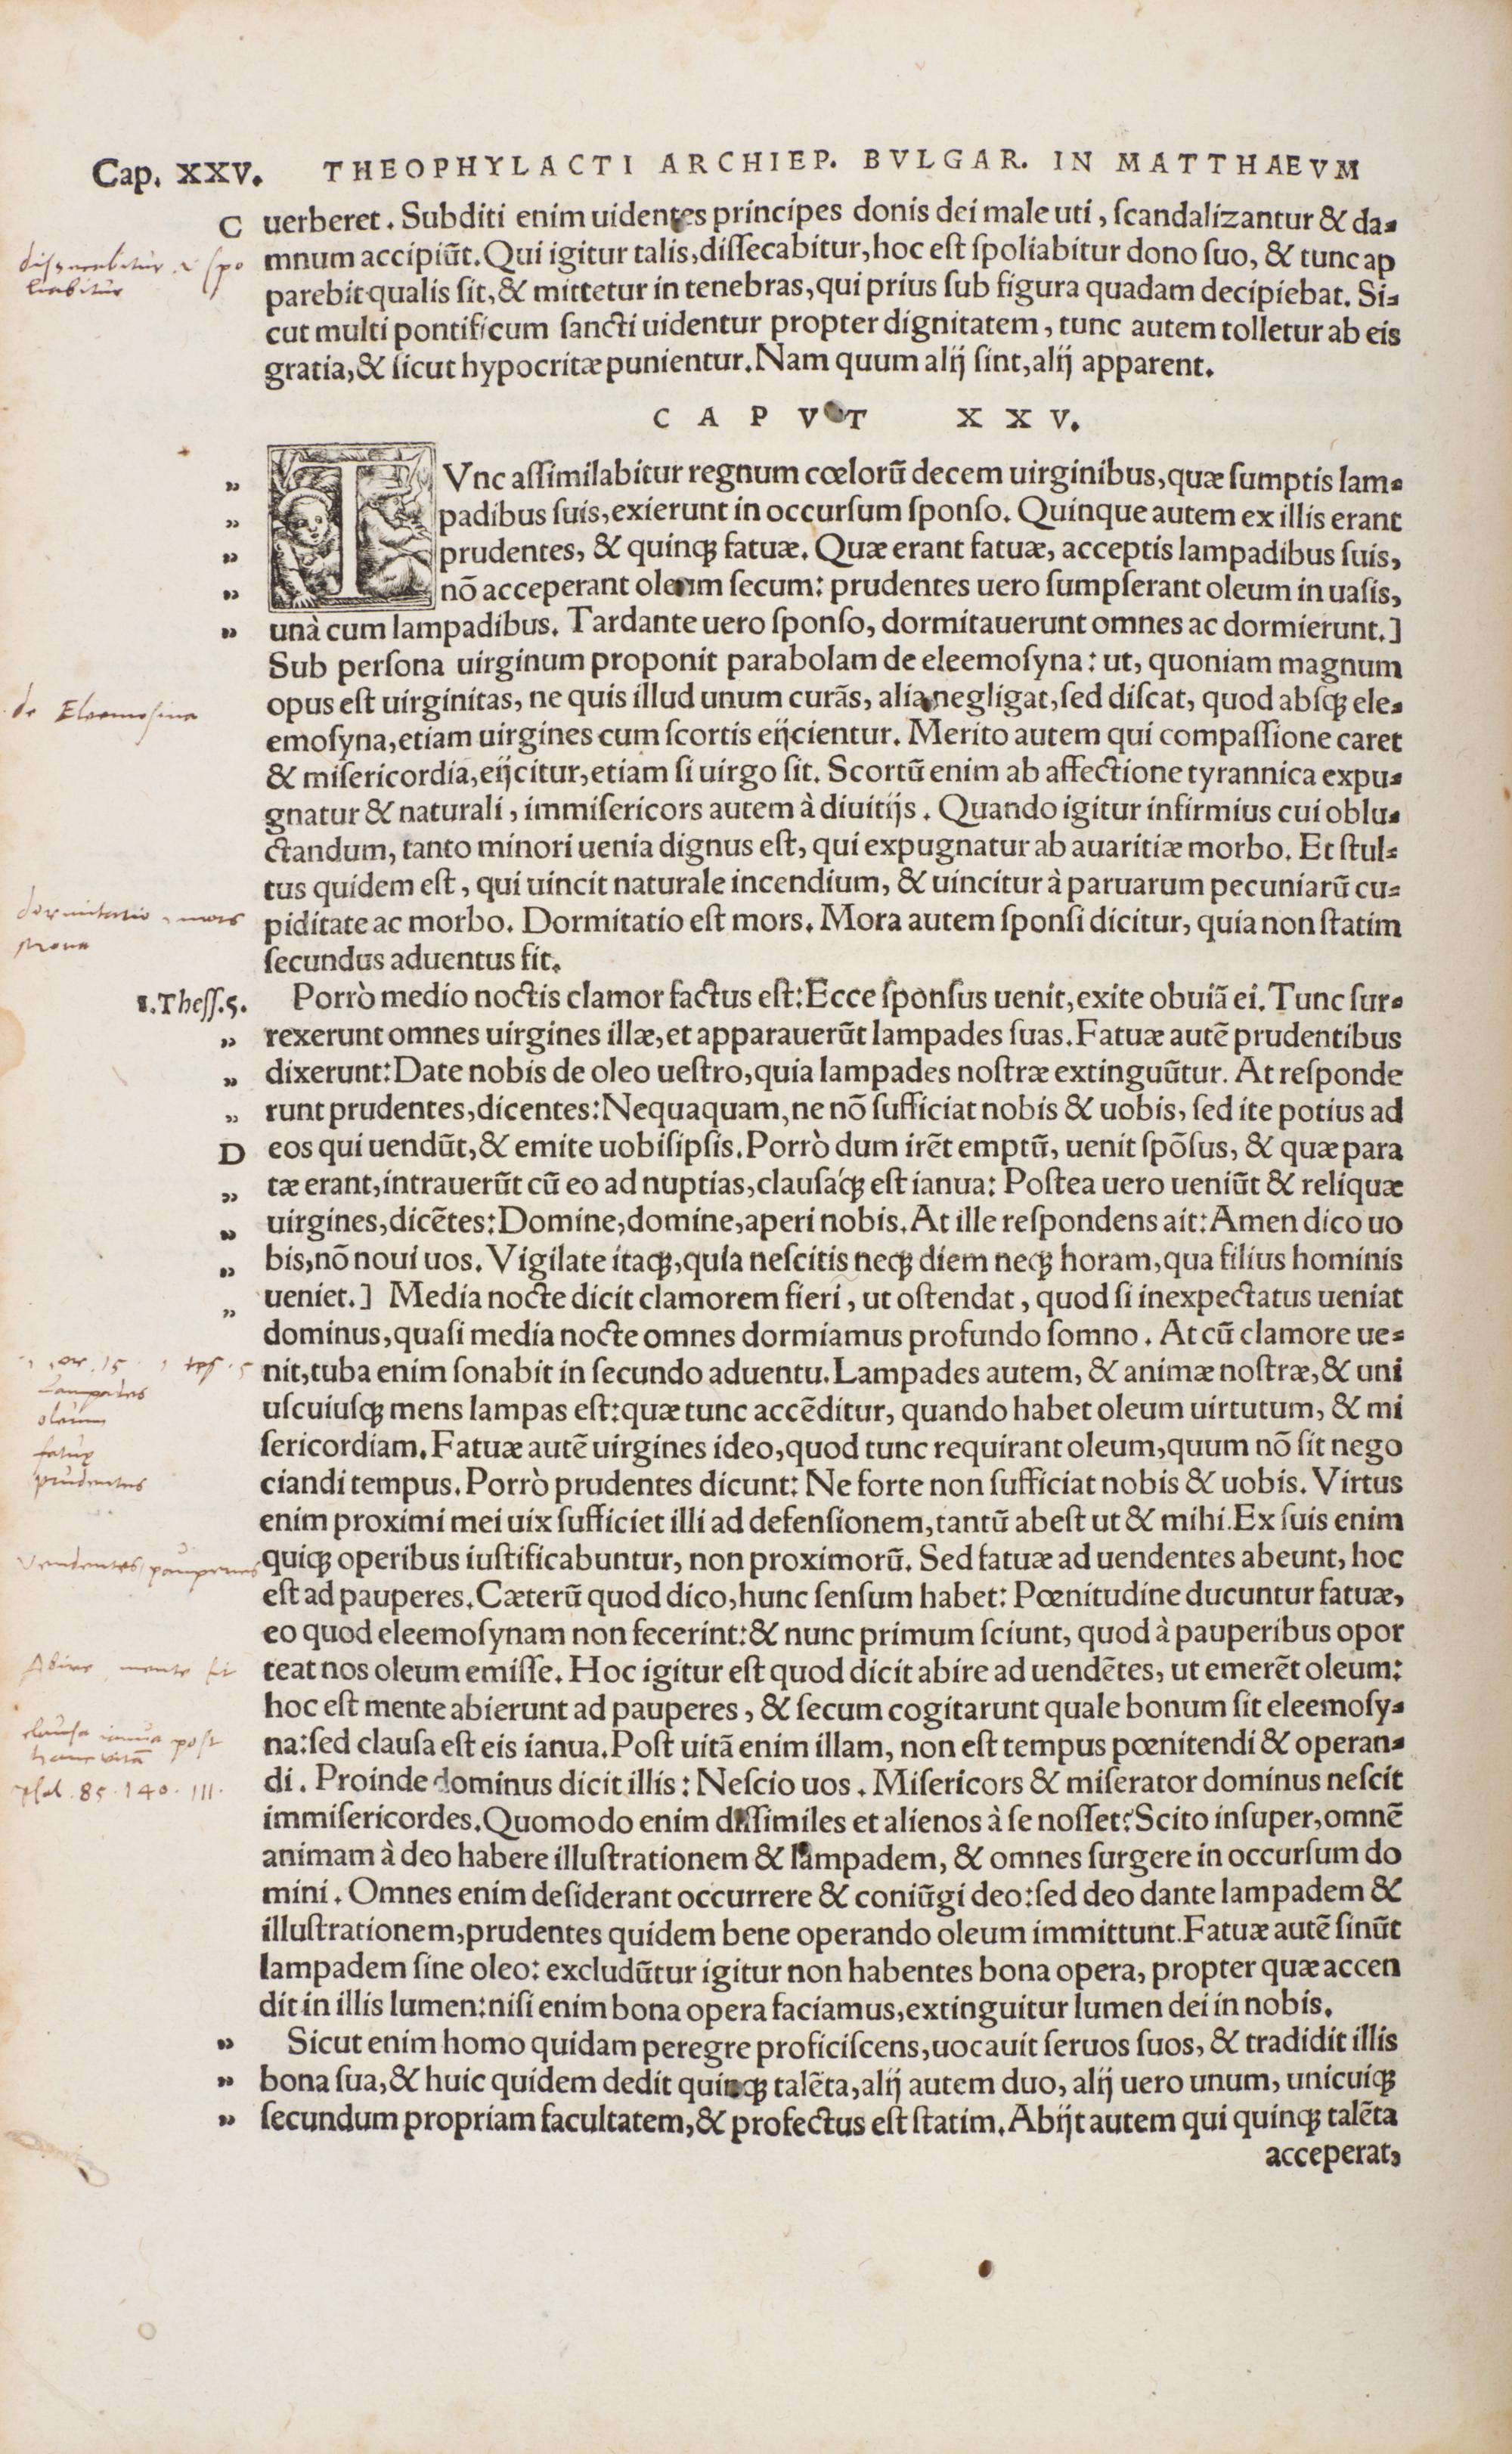 Cap. XXV. THEOPHYLACTI ARCHIEP. BVLGAR. IN MATTHAEVM
C uerberet. Subditi enim uidentes principes donis dei male uti, scandalizantur & da-
mnum accipiūt. Qui igitur talis, dissecabitur, hoc est spoliabitur dono suo, & tunc ap
parebit qualis sit, & mittetur in tenebras, qui prius sub figura quadam decipiebat. Si-
cut multi pontificum sancti uidentur propter dignitatem, tunc autem tolletur ab eis
gratia, & sicut hypocritæ punientur. Nam quum alij sint, alij apparent.
spo
liabitur
CAPVT XXV.
TVnc assimilabitur regnum cœlorū decem uirginibus, quæ sumptis lam-
padibus suis, exierunt in occursum sponso. Quinque autem ex illis erant
prudentes, & quinqꝫ fatuæ. Quæ erant fatuæ, acceptis lampadibus suis,
nō acceperant oleum secum: prudentes uero sumpserant oleum in uasis,
unà cum lampadibus. Tardante uero sponso, dormitauerunt omnes ac dormierunt.]
Sub persona uirginum proponit parabolam de eleemosyna: ut, quoniam magnum
opus est uirginitas, ne quis illud unum curās, alia negligat, sed discat, quod absqꝫ ele-
emosyna, etiam uirgines cum scortis eijcientur. Merito autem qui compassione caret
& misericordia, eijcitur, etiam si uirgo sit. Scortū enim ab affectione tyrannica expu-
gnatur & naturali, immisericors autem à diuitijs. Quando igitur infirmius cui oblu-
ctandum, tanto minori uenia dignus est, qui expugnatur ab auaritiæ morbo. Et stul-
tus quidem est, qui uincit naturale incendium, & uincitur à paruarum pecuniarū cu-
piditate ac morbo. Dormitatio est mors. Mora autem sponsi dicitur, quia non statim
secundus aduentus fit.
de Eleemosina
dormitatio mors
mora
1. Thess. 5. Porrò medio noctis clamor factus est: Ecce sponsus uenit, exite obuiā ei. Tunc sur-
rexerunt omnes uirgines illæ, et apparauerūt lampades suas. Fatuæ autē prudentibus
dixerunt: Date nobis de oleo uestro, quia lampades nostræ extinguūtur. At responde
runt prudentes, dicentes: Nequaquam, ne nō sufficiat nobis & uobis, sed ite potius ad
D eos qui uendūt, & emite uobisipsis. Porrò dum irēt emptū, uenit spōsus, & quæ para
tæ erant, intrauerūt cū eo ad nuptias, clausáqꝫ est ianua: Postea uero ueniūt & reliquæ
uirgines, dicētes: Domine, domine, aperi nobis. At ille respondens ait: Amen dico uo
bis, nō noui uos. Vigilate itaqꝫ, quia nescitis neqꝫ diem neqꝫ horam, qua filius hominis
ueniet.] Media nocte dicit clamorem fieri, ut ostendat, quod si inexpectatus ueniat
dominus, quasi media nocte omnes dormiamus profundo somno. At cū clamore ue-
nit, tuba enim sonabit in secundo aduentu. Lampades autem, & animæ nostræ, & uni
uscuiusqꝫ mens lampas est: quæ tunc accēditur, quando habet oleum uirtutum, & mi
sericordiam. Fatuæ autē uirgines ideo, quod tunc requirant oleum, quum nō sit nego
ciandi tempus. Porrò prudentes dicunt: Ne forte non sufficiat nobis & uobis. Virtus
enim proximi mei uix sufficiet illi ad defensionem, tantū abest ut & mihi. Ex suis enim
quiqꝫ operibus iustificabuntur, non proximorū. Sed fatuæ ad uendentes abeunt, hoc
est ad pauperes. Cæterū quod dico, hunc sensum habet: Pœnitudine ducuntur fatuæ,
eo quod eleemosynam non fecerint: & nunc primum sciunt, quod à pauperibus opor
teat nos oleum emisse. Hoc igitur est quod dicit abire ad uendētes, ut emerēt oleum:
hoc est mente abierunt ad pauperes, & secum cogitarunt quale bonum sit eleemosy-
na: sed clausa est eis ianua. Post uitā enim illam, non est tempus pœnitendi & operan-
di. Proinde dominus dicit illis: Nescio uos. Misericors & miserator dominus nescit
immisericordes. Quomodo enim dissimiles et alienos à se nosset? Scito insuper, omnē
animam à deo habere illustrationem & lampadem, & omnes surgere in occursum do
mini. Omnes enim desiderant occurrere & coniūgi deo: sed deo dante lampadem &
illustrationem, prudentes quidem bene operando oleum immittunt. Fatuæ autē sinūt
lampadem sine oleo: excludūtur igitur non habentes bona opera, propter quæ accen
dit in illis lumen: nisi enim bona opera faciamus, extinguitur lumen dei in nobis.
15 1 tes. 5
Lampades
oleum
fatuę
prudentes
Vendentes pauperes
Abire mente
clausa ianua post
hanc uitā
psal. 85. 140. 111.
" Sicut enim homo quidam peregre proficiscens, uocauit seruos suos, & tradidit illis
" bona sua, & huic quidem dedit quinqꝫ talēta, alij autem duo, alij uero unum, unicuiqꝫ
" secundum propriam facultatem, & profectus est statim. Abijt autem qui quinqꝫ talēta
acceperat,